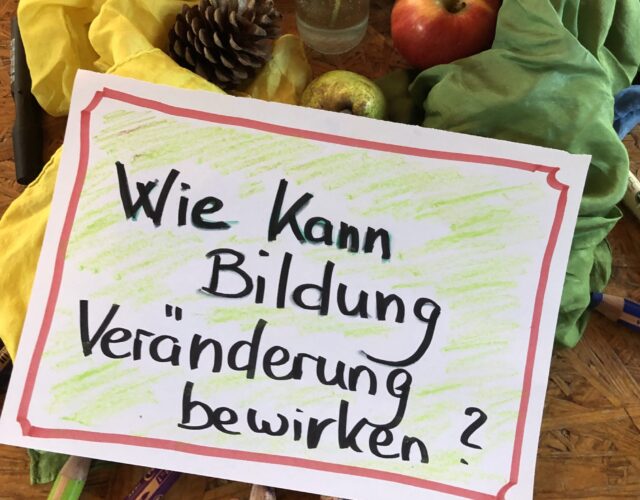 Wie kann
Bildung
Veränderung
bewirken?